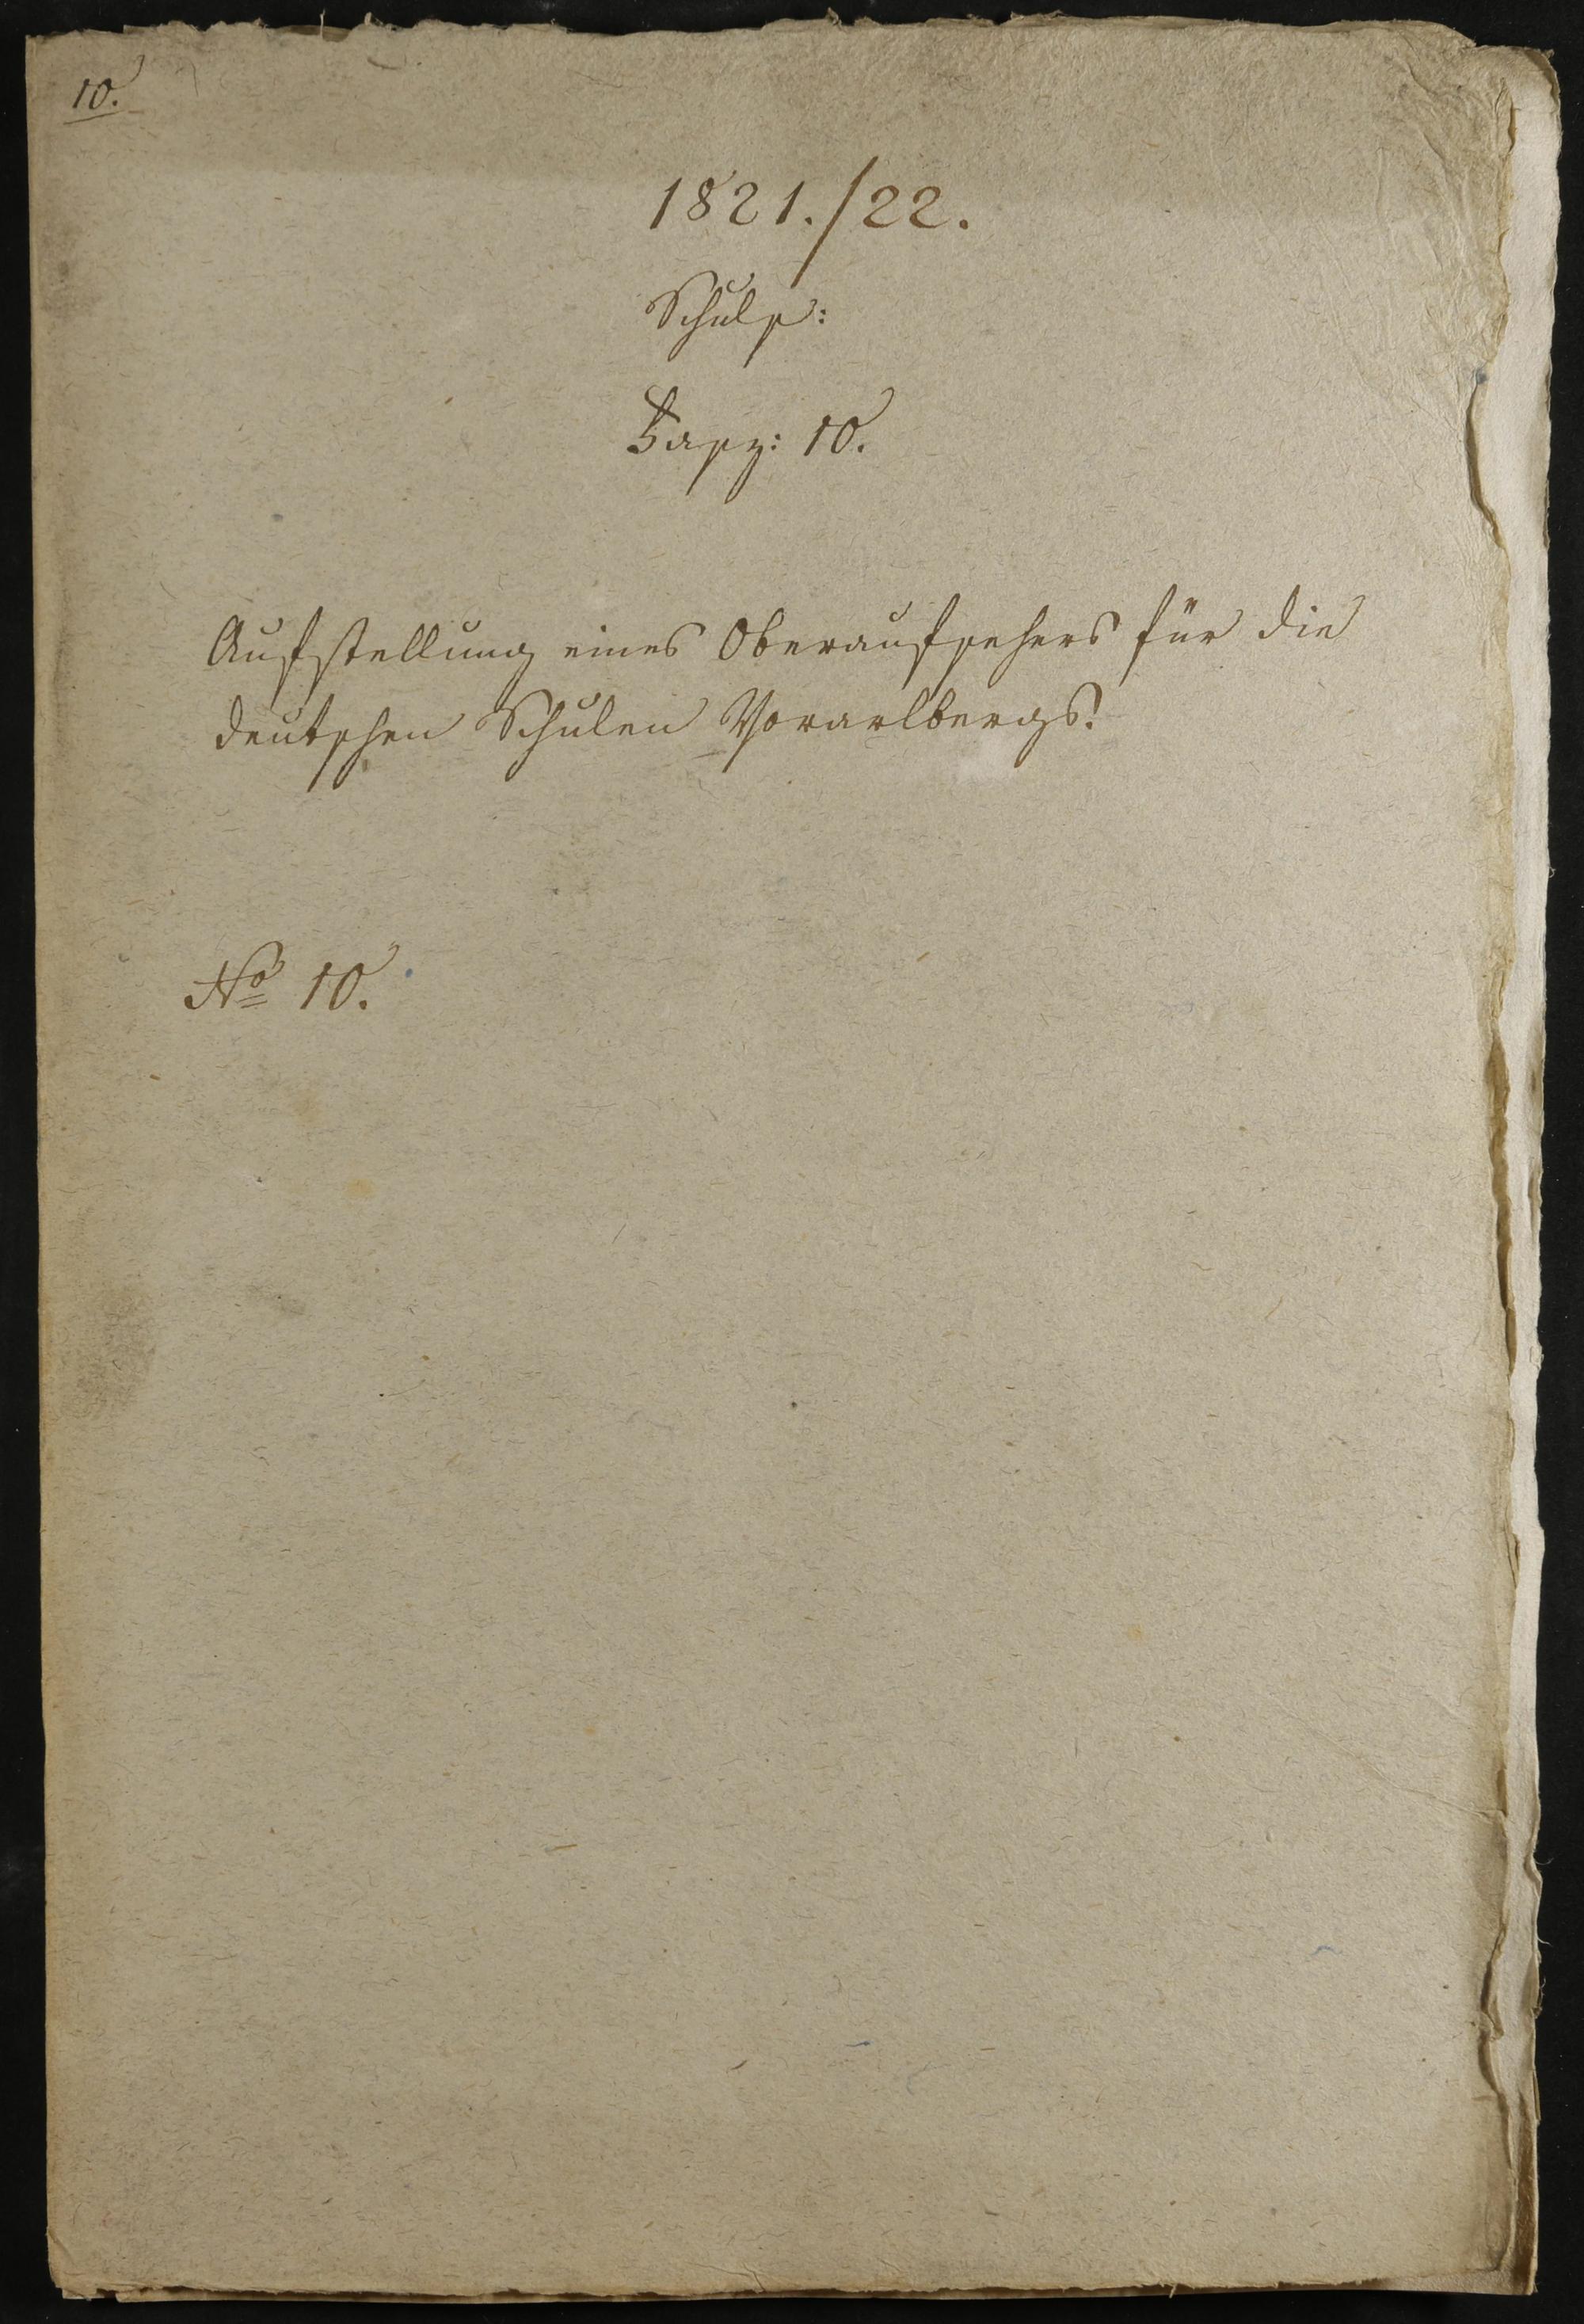 10.
1821./22.
Schuls:
Fasz: 10.
Aufstellung eines Oberaufsehers für die
deutschen Schulen Vorarlbergs.
No 10.